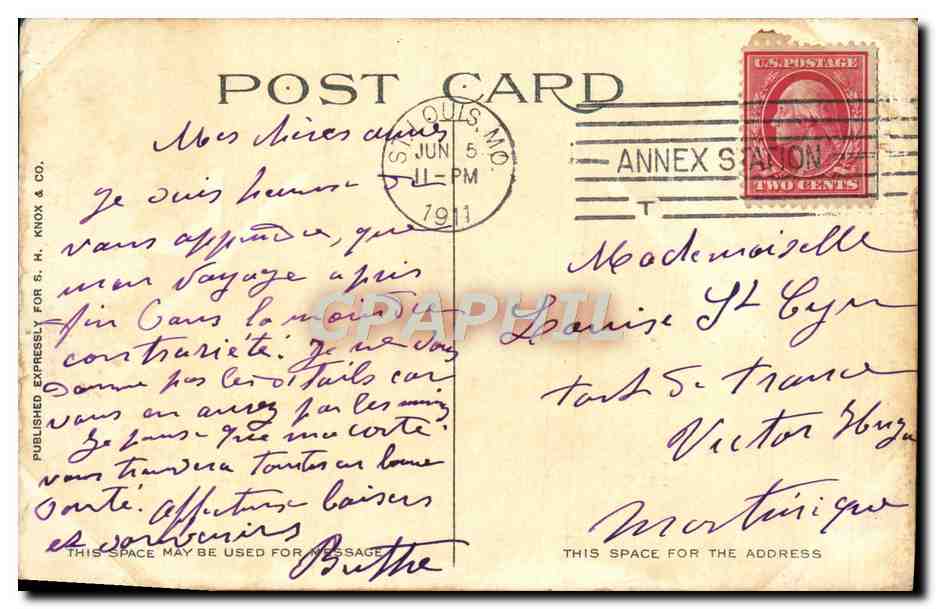 POST CARD
ST. LOUIS, MO.
JUN 5
11-PM
1911
ANNEX STATION
T
U.S. POSTAGE
TWO CENTS
Mes chères amies
Je suis heureuse
vous apprendre, que
mon voyage a pris
fin sans la moindre
contrariété. Je ne vous
donne pas les détails car
vous en aurez par les
Je pense que ma carte
vous trouvera toutes en bonne
santé. Affectueux baisers
et souvenirs
Berthe
Mademoiselle
Louise St Cyr
Fort de France
Victor Hugo
Martinique
CPAPHIL
PUBLISHED EXPRESSLY FOR S. H. KNOX & CO.
THIS SPACE MAY BE USED FOR MESSAGE
THIS SPACE FOR THE ADDRESS